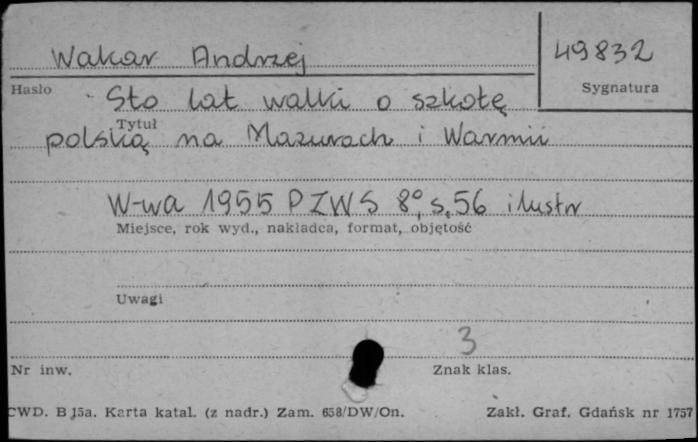 Wakar Andrzej
49832
Hasło
Sygnatura
Sto lat walki o szkołę
Tytuł
polską na Mazurach i Warmii
W-wa 1955 PZWS 8°, s. 56 ilustr
Miejsce, rok wyd., nakładca, format, objętość
Uwagi
3
Nr inw.
Znak klas.
CWD. B 15a. Karta katal. (z nadr.) Zam. 658/DW/On.
Zakł. Graf. Gdańsk nr 1757